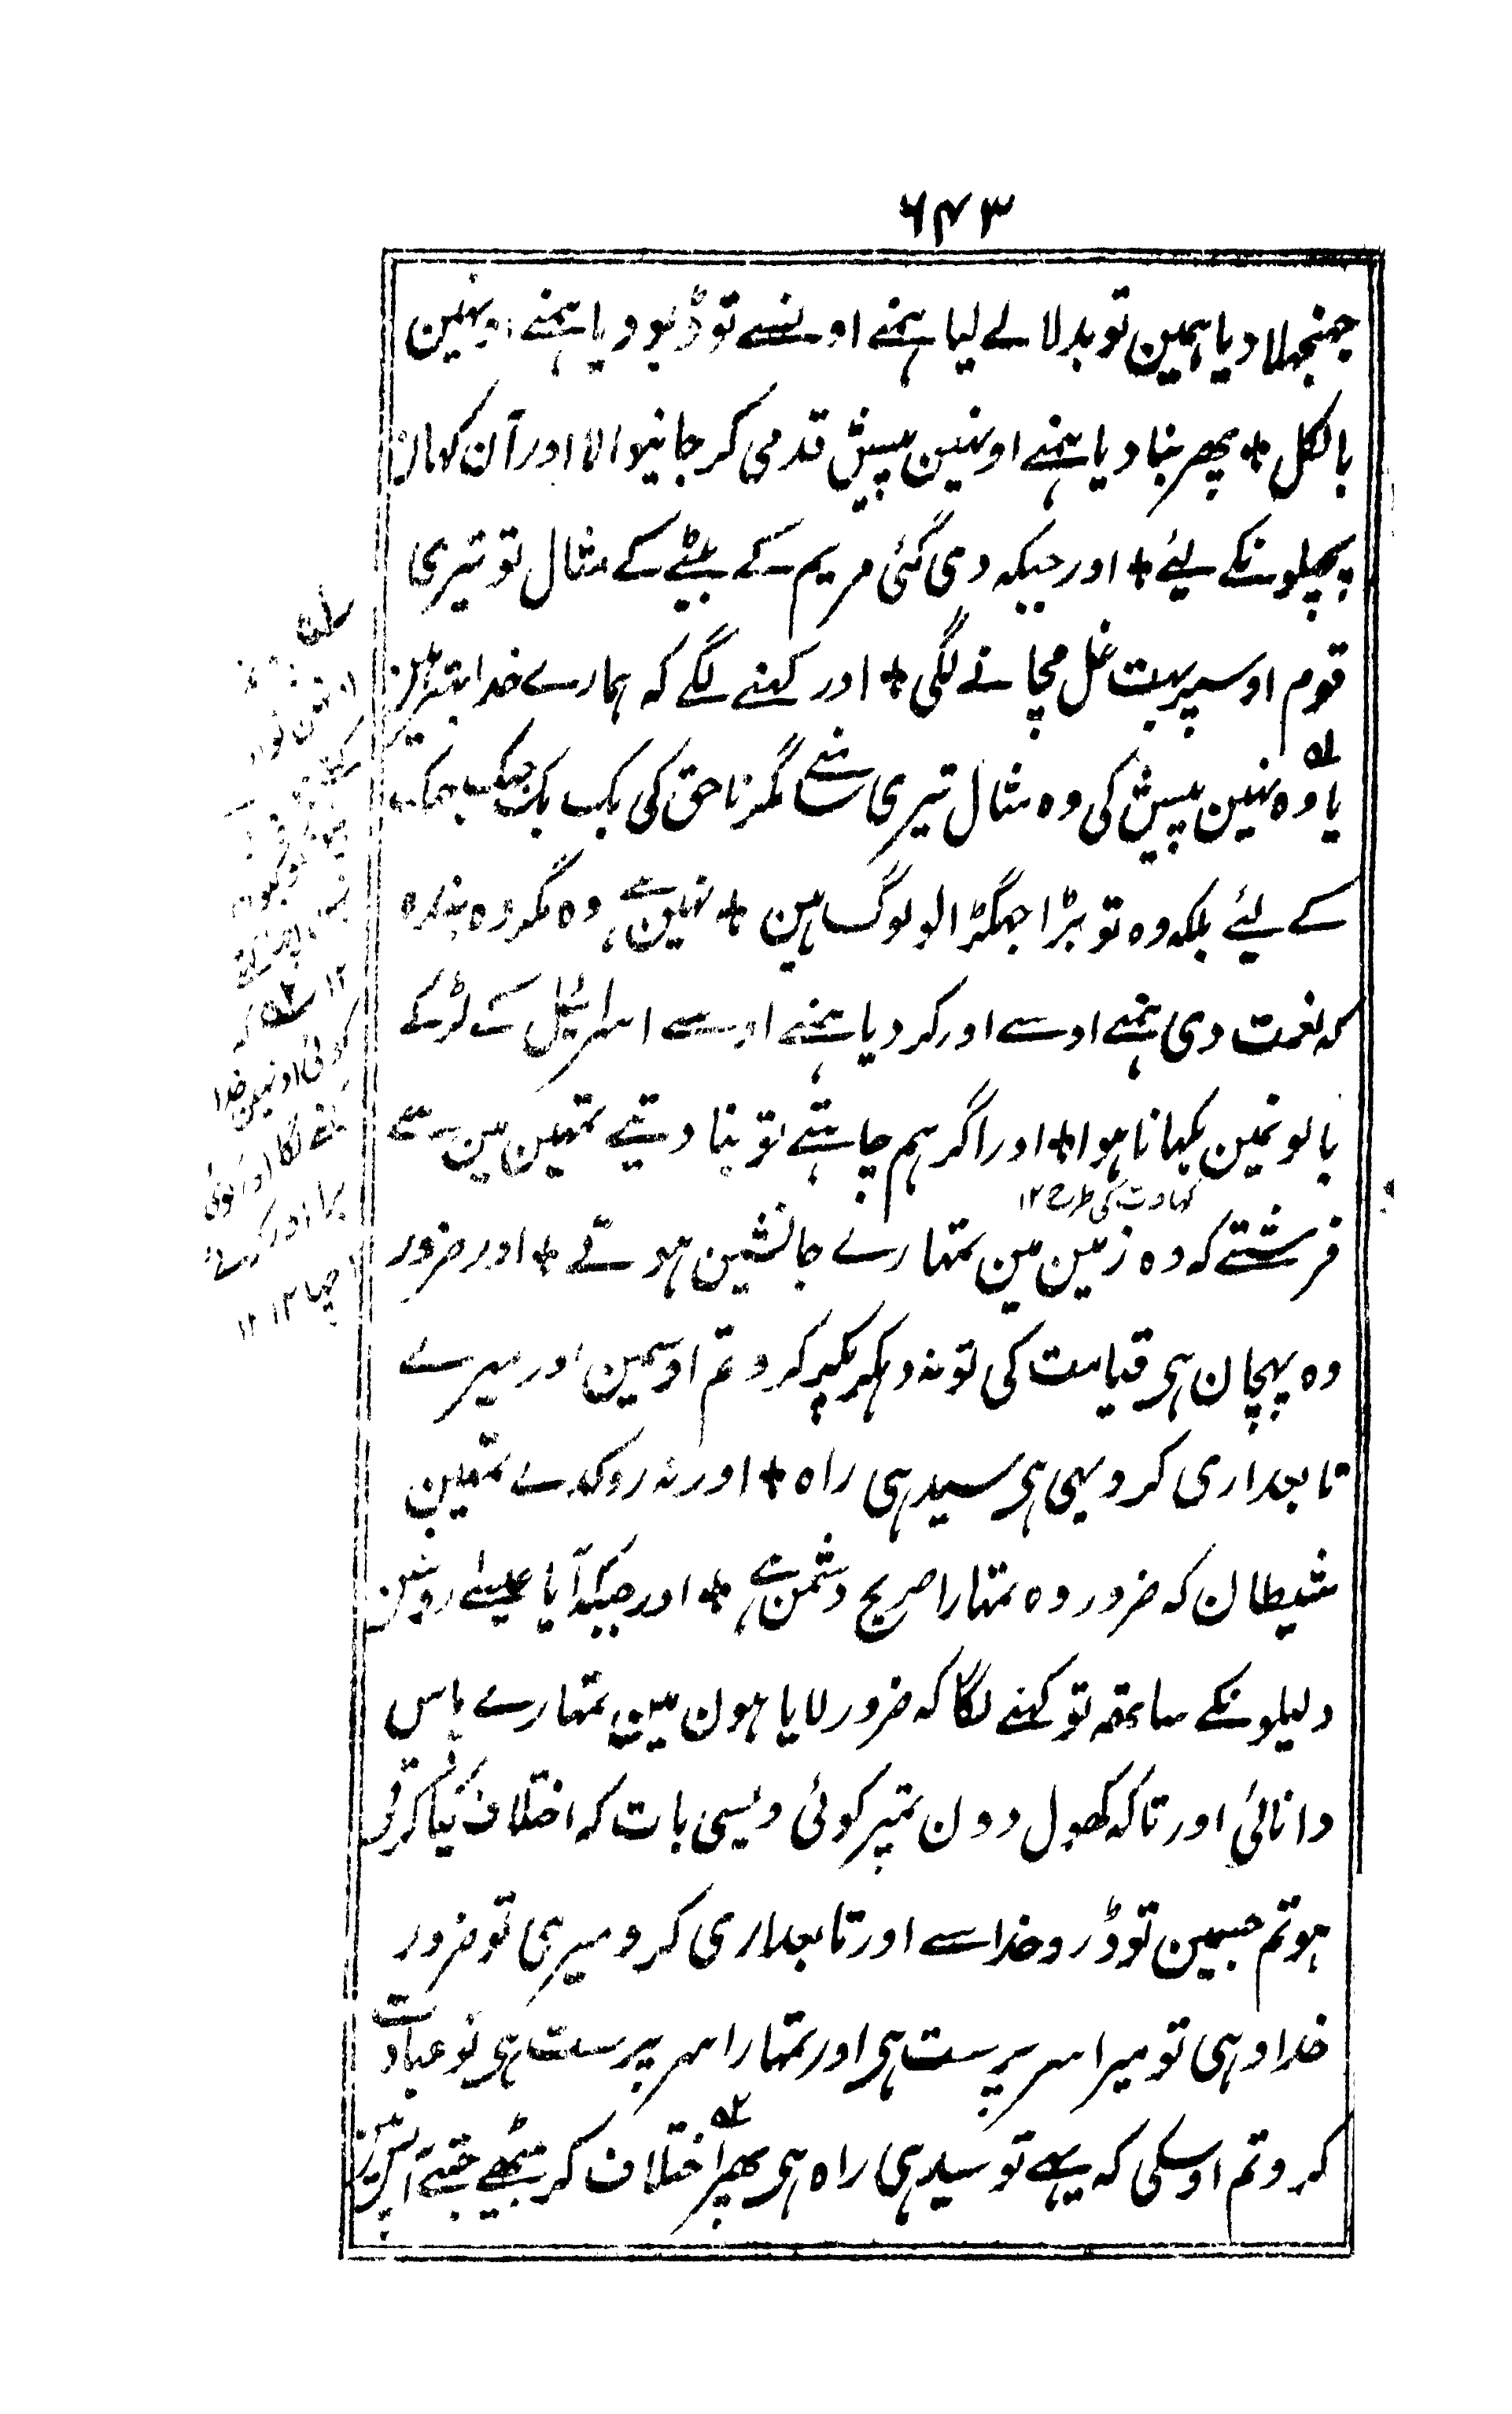 ۶۴۳
جنجھلا دیا ہمین تو بدلا لے لیا ہمنے اونسے تو ڈبو دیا ہمنے اونہین
بالکل + پھر بنا دیا ہمنے اونہین پیش قدمی کر جانیوالا اور آن کہان
پچھلونکے لیئے + اور جبکہ دی گئی مریم کے بیٹے کے مثال تو تیری
قوم اوسپر بہت غل مچانے لگی + اور کہنے لگے کہ ہمارے خدا بہتر ہین
یا وہ نہین پیش کی وہ مثال تیری سامنے مگر ناحق کی بک بک جھک جھک
کے لیئے بلکہ وہ تو بڑا جھگڑالو لوگ ہین + نہین ہے وہ مگر وہ بندہ
کہ نعمت دی ہمنے اوسے اور کر دیا ہمنے اوسے اسرائیل کے لڑکے
بالونمین کہانا ہوا + اور اگر ہم چاہتے تو بنا دیتے تمہین مین سے
کہاوت کی طرح ۱۲
فرشتے کہ وہ زمین مین تمہارے جانشین ہوتے + اور ضرور
وہ پہچان ہی قیامت کی تو نہ دہکر پکر کرو تم اوسمین اور میرے
تابعداری کرو یہی ہی سیدہی راہ + اور نہ روکدے تمہین
شیطان کہ ضرور وہ تمہارا صریح دشمن ہے + اور جبکہ آیا عیسےٰ روشن
دلیلونکے ساتھ تو کہنے لگا کہ ضرور لایا ہون مین تمہارے پاس
دانائی اور تاکہ کھول دون تمپر کوئی ویسی بات کہ اختلاف کیا کرتی
ہو تم جسمین تو ڈرو خدا سے اور تابعداری کرو میری تو ضرور
خدا وہی تو میرا سرپرست ہی اور تمہارا سرپرست ہی تو عبادت
کرو تم اوسکی کہ یہے تو سیدہی راہ ہی پھر اختلاف کر بیٹھے جتھے آپس مین
۱۲ کہ
کوئی اونہین خدا
کہنے لگا اور کوئی
برا اور کوئی
اچھا ۱۲ ۱۲